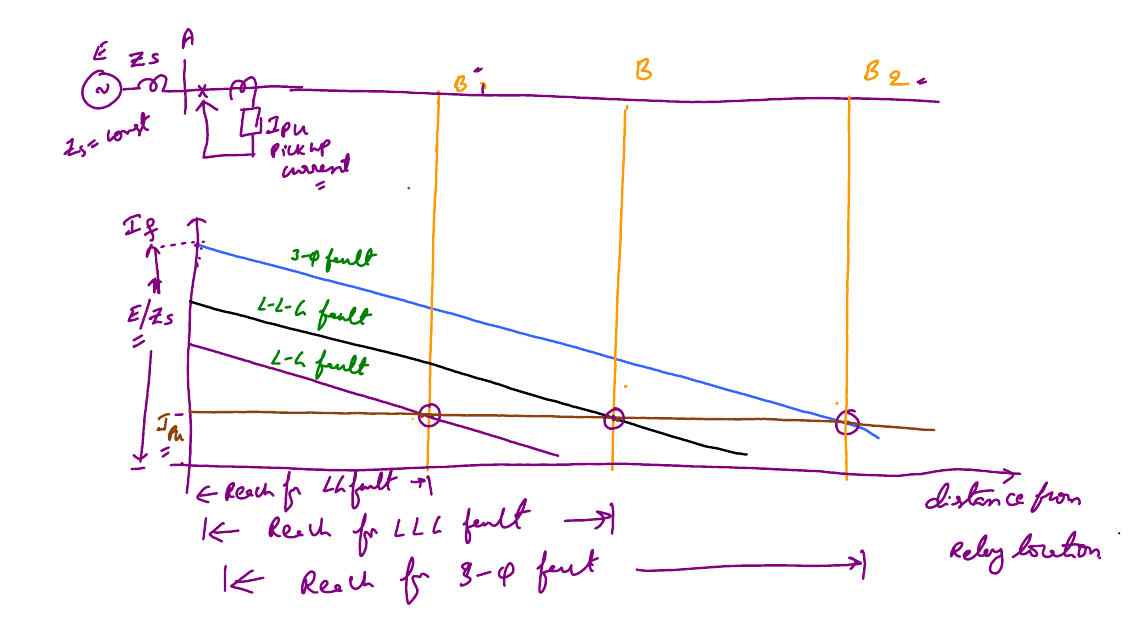 E Zs A
~
Zs = const
IPU
Pick up
current
B1
B
B2
If
E/Zs
IPu
3-φ fault
L-L-G fault
L-G fault
← Reach for LG fault →|
|← Reach for LLG fault →|
|← Reach for 3-φ fault →|
distance from
Relay location